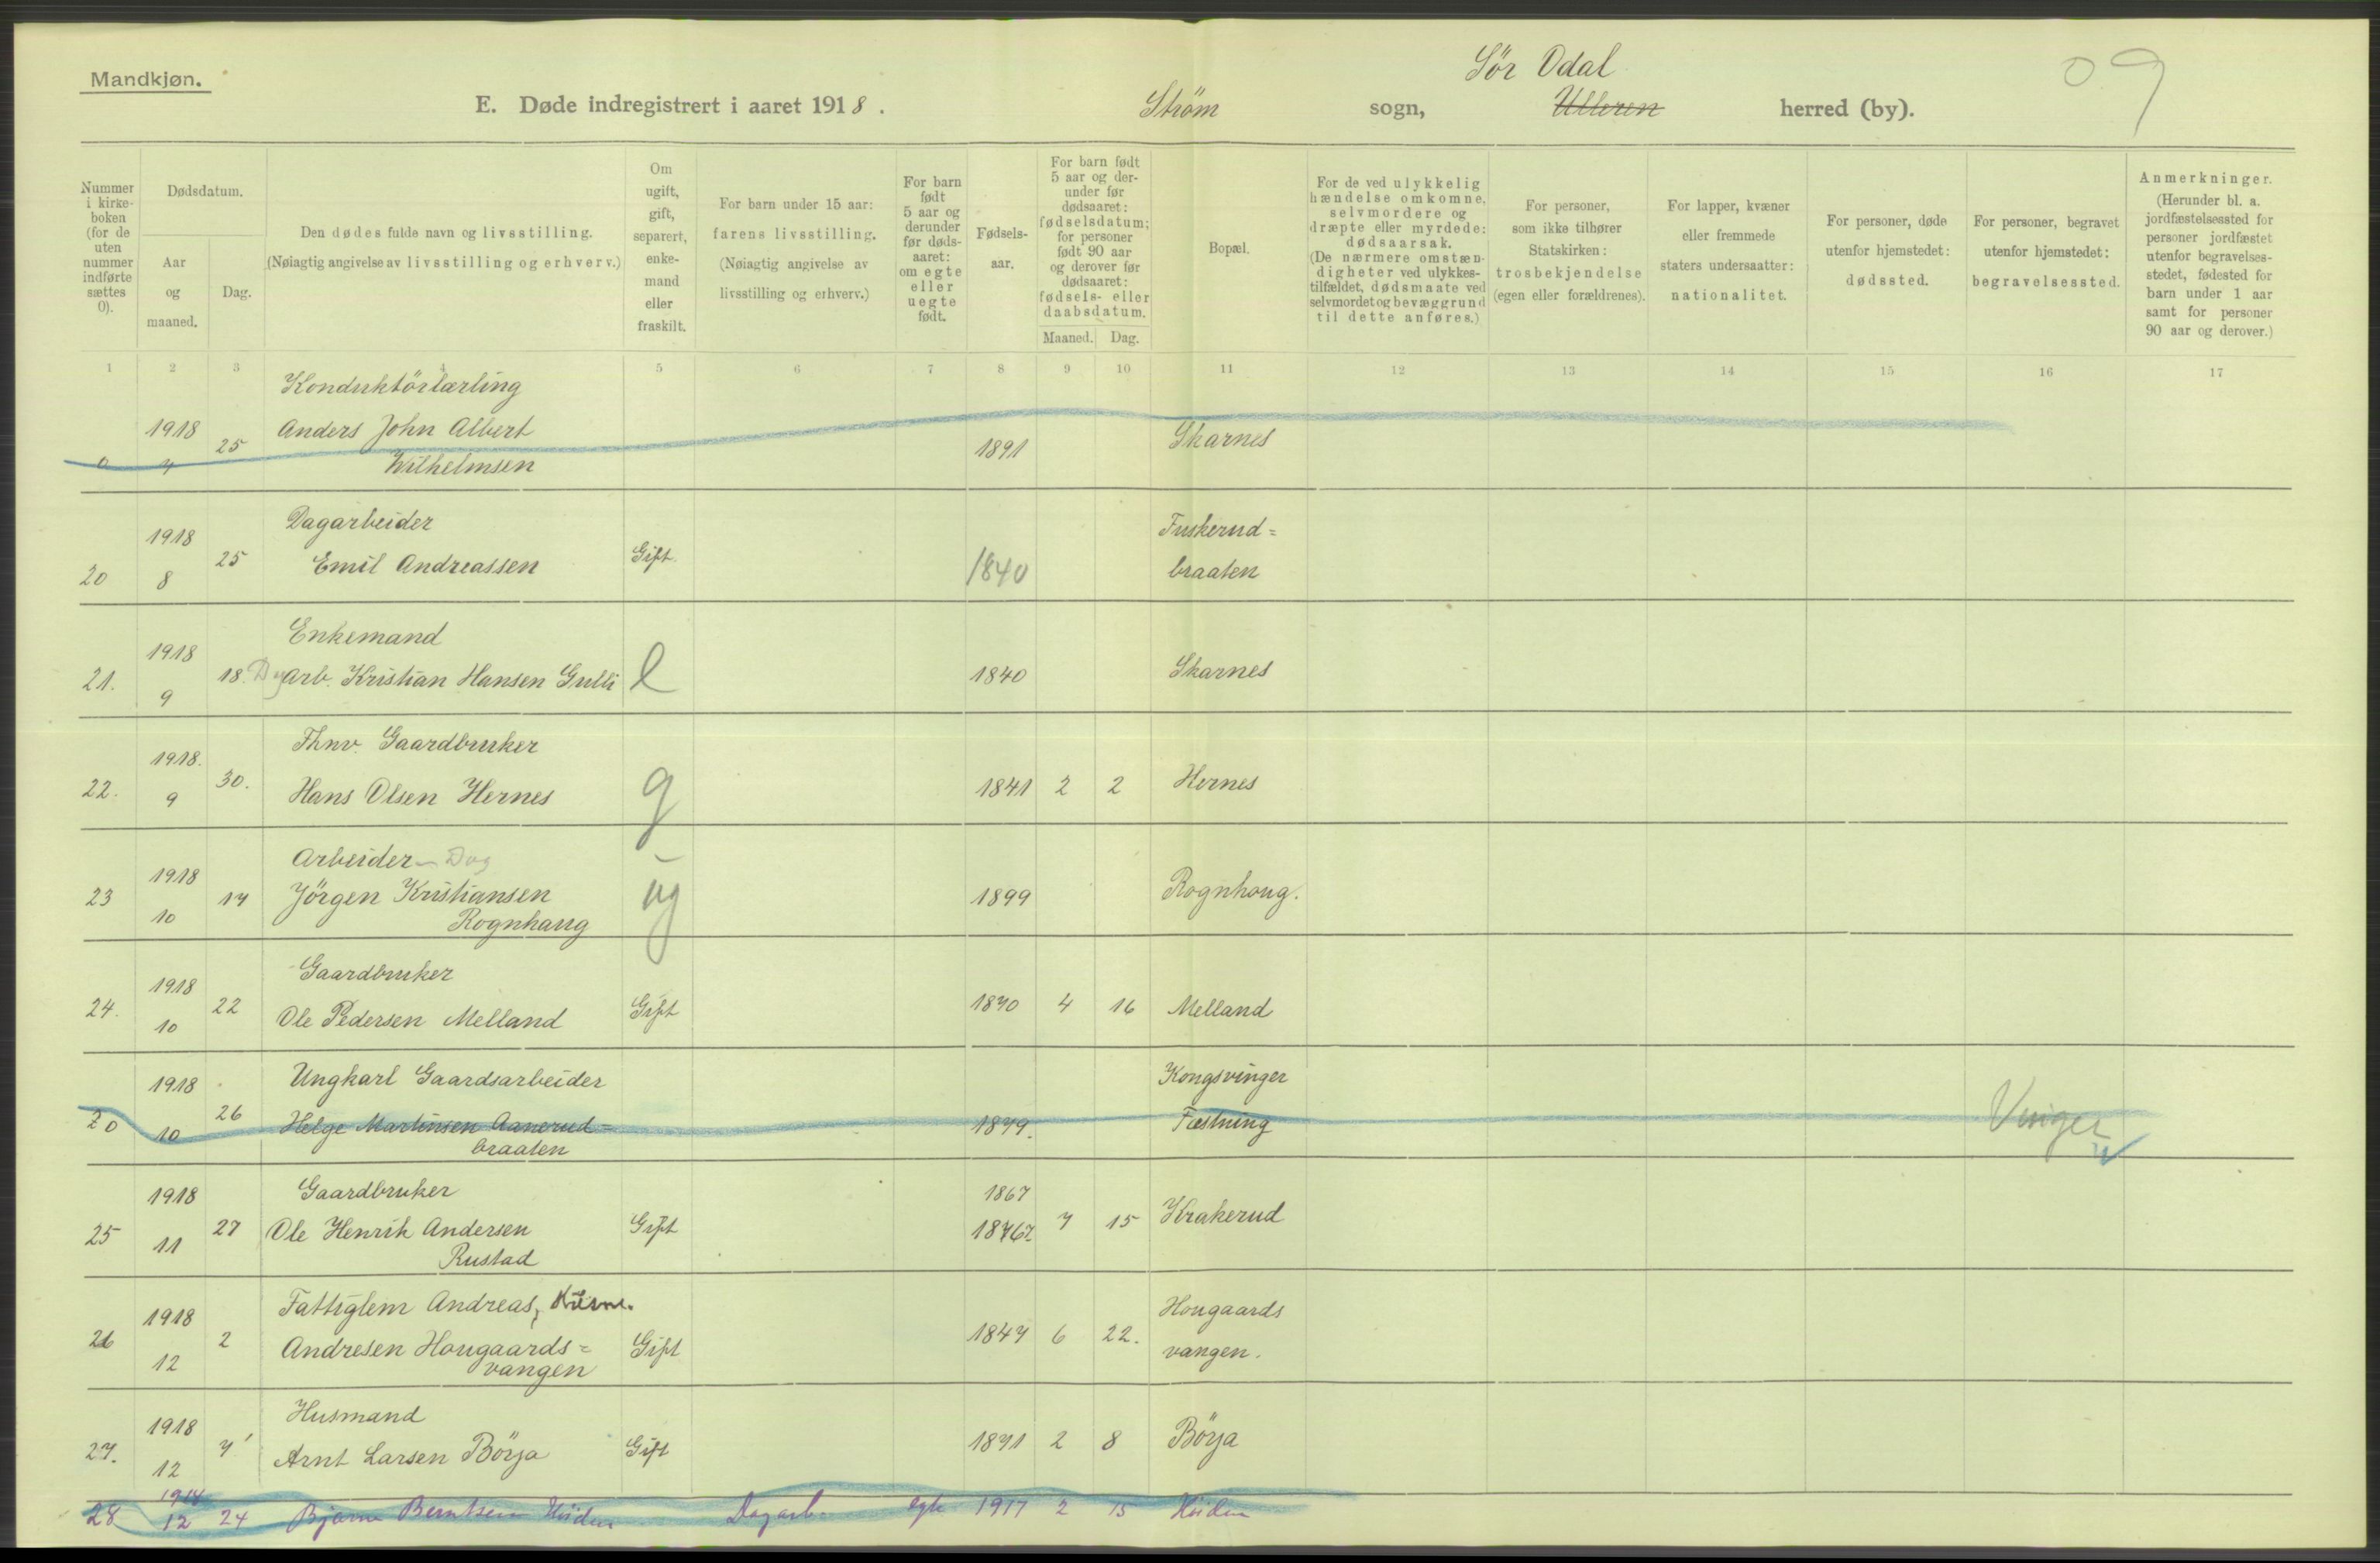 Mandkjøn.
Sör Odal
09
E. Døde indregistrert i aaret 1918. Ström sogn, Ulleren herred (by).
Nummer i kirkeboken (for de uten nummer indførte sættes 0).
Dødsdatum.
Aar og maaned.
Dag.
Den dødes fulde navn og livsstilling.
(Nøiagtig angivelse av livsstilling og erhverv.)
Om ugift, gift, separert, enkemand eller fraskilt.
For barn under 15 aar:
farens livsstilling.
(Nøiagtig angivelse av livsstilling og erhverv.)
For barn født 5 aar og derunder før dødsaaret: om egte eller uegte født.
Fødselsaar.
For barn født 5 aar og derunder før dødsaaret: fødselsdatum; for personer født 90 aar og derover før dødsaaret: fødsels- eller daabsdatum.
Maaned. Dag.
Bopæl.
For de ved ulykkelig hændelse omkomne, selvmordere og dræpte eller myrdede: dødsaarsak.
(De nærmere omstændigheter ved ulykkestilfældet, dødsmaate ved selvmordet og bevæggrund til dette anføres.)
For personer, som ikke tilhører Statskirken: trosbekjendelse (egen eller forældrenes).
For lapper, kvæner eller fremmede staters undersaatter: nationalitet.
For personer, døde utenfor hjemstedet: dødssted.
For personer, begravet utenfor hjemstedet: begravelsessted.
Anmerkninger.
(Herunder bl. a. jordfæstelsessted for personer jordfæstet utenfor begravelsesstedet, fødested for barn under 1 aar samt for personer 90 aar og derover.)
1 2 3 4 5 6 7 8 9 10 11 12 13 14 15 16 17
Konduktörlærling
1918 25 Anders John Albert 1891 Skarnes
0 7 Wilhelmsen
Dagarbeider Fuskerud=
1918 25 Emil Andreassen Gift 1840
20 8 braaten
Enkemand
1918 18. Dgarb. Kristian Hansen Gulli e 1840 Skarnes
21. 9
Fhnv. Gaardbruker
1918. 30. Hans Olsen Hernes g 1841 2 2 Hernes
22. 9
Arbeider - Dag
1918 17 Jörgen Kristiansen ug 1899 Rognhoug.
23 10 Rognhaug
Gaardbruker
1918 22 Ole Pedersen Melland Gift 1870 4 16 Melland
24. 10
1918 Ungkarl Gaardsarbeider Kongsvinger
20 10 26 Helge Martinsen Aanerud= 1879. Fæstning Vinger
braaten
1918 Gaardbruker 1867
25 11 27 Ole Henrik Andersen Gift 7 15 Krakerud
Rustad
1918 Fattiglem Andreas, Hougaards
26 12 2 Andresen Hougaards= Gift 1847 6 22. vangen.
vangen
1918 Husmand
27. 12 7 Arnt Larsen Börja Gift 1871 2 8 Börja
1918
28 12 24 Bjarne Berntsen Höiden Dagarb. egte 1917 2 15 Höiden